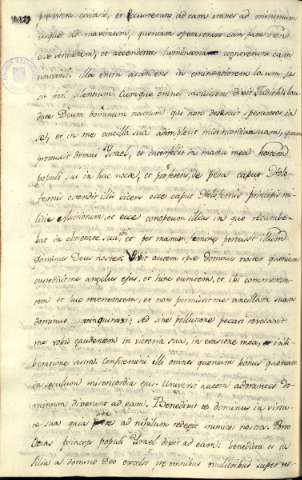 populum civitatis, et occurrerunt ad eam omnes a minimo
usque ad maximum, quoniam sperabant eam jam non
esse venturam, et accendentes luminaria congyraverunt eam
universi: illa autem ascendens in eminentiorem locum, jus
sit fieri silentium. Cumque omnes tacuissent dixit Judith: lau
date Deum Dominum nostrum qui non deseruit sperantes in
se, et in me ancilla sua adimplevit misericordiam suam, quam
promisit domui Ysrael, et interfecit in manu mea hostem
populi sui in hac nocte, et proferens de pera caput Holo
fernis ostendit illis dicens ecce caput Holofernis principis mi
litiæ Assiriorum, et ecce conopeum illius in quo recumbe
bat in ebrietate sua, et per manum femine percussit illum
Dominus Deus noster. Vivit autem Dominus noster quoniam
custodivit me angelus ejus, et hinc euntem, et ibi commorantem
et huc revertentem, et non permisit me ancillam suam
Dominus coinquinari, sed sine pollutione pecati revocavit
me vobis gaudentem in victoria sua, in evasione mea, et in li
beratione vestra. Confitemini illi omnes quoniam bonus quoniam
in seculum misericordia ejus. Universi autem adorantes Do
minum dixerunt ad eam. Benedixit te Dominus in virtu
te sua quia per te ad nihilum redegit inimicos nostros. Porro
Ozias princeps populi Ysrael dixit ad eam: benedicta es tu
filia a Domino Deo excelso præ omnibus mulieribus super ter